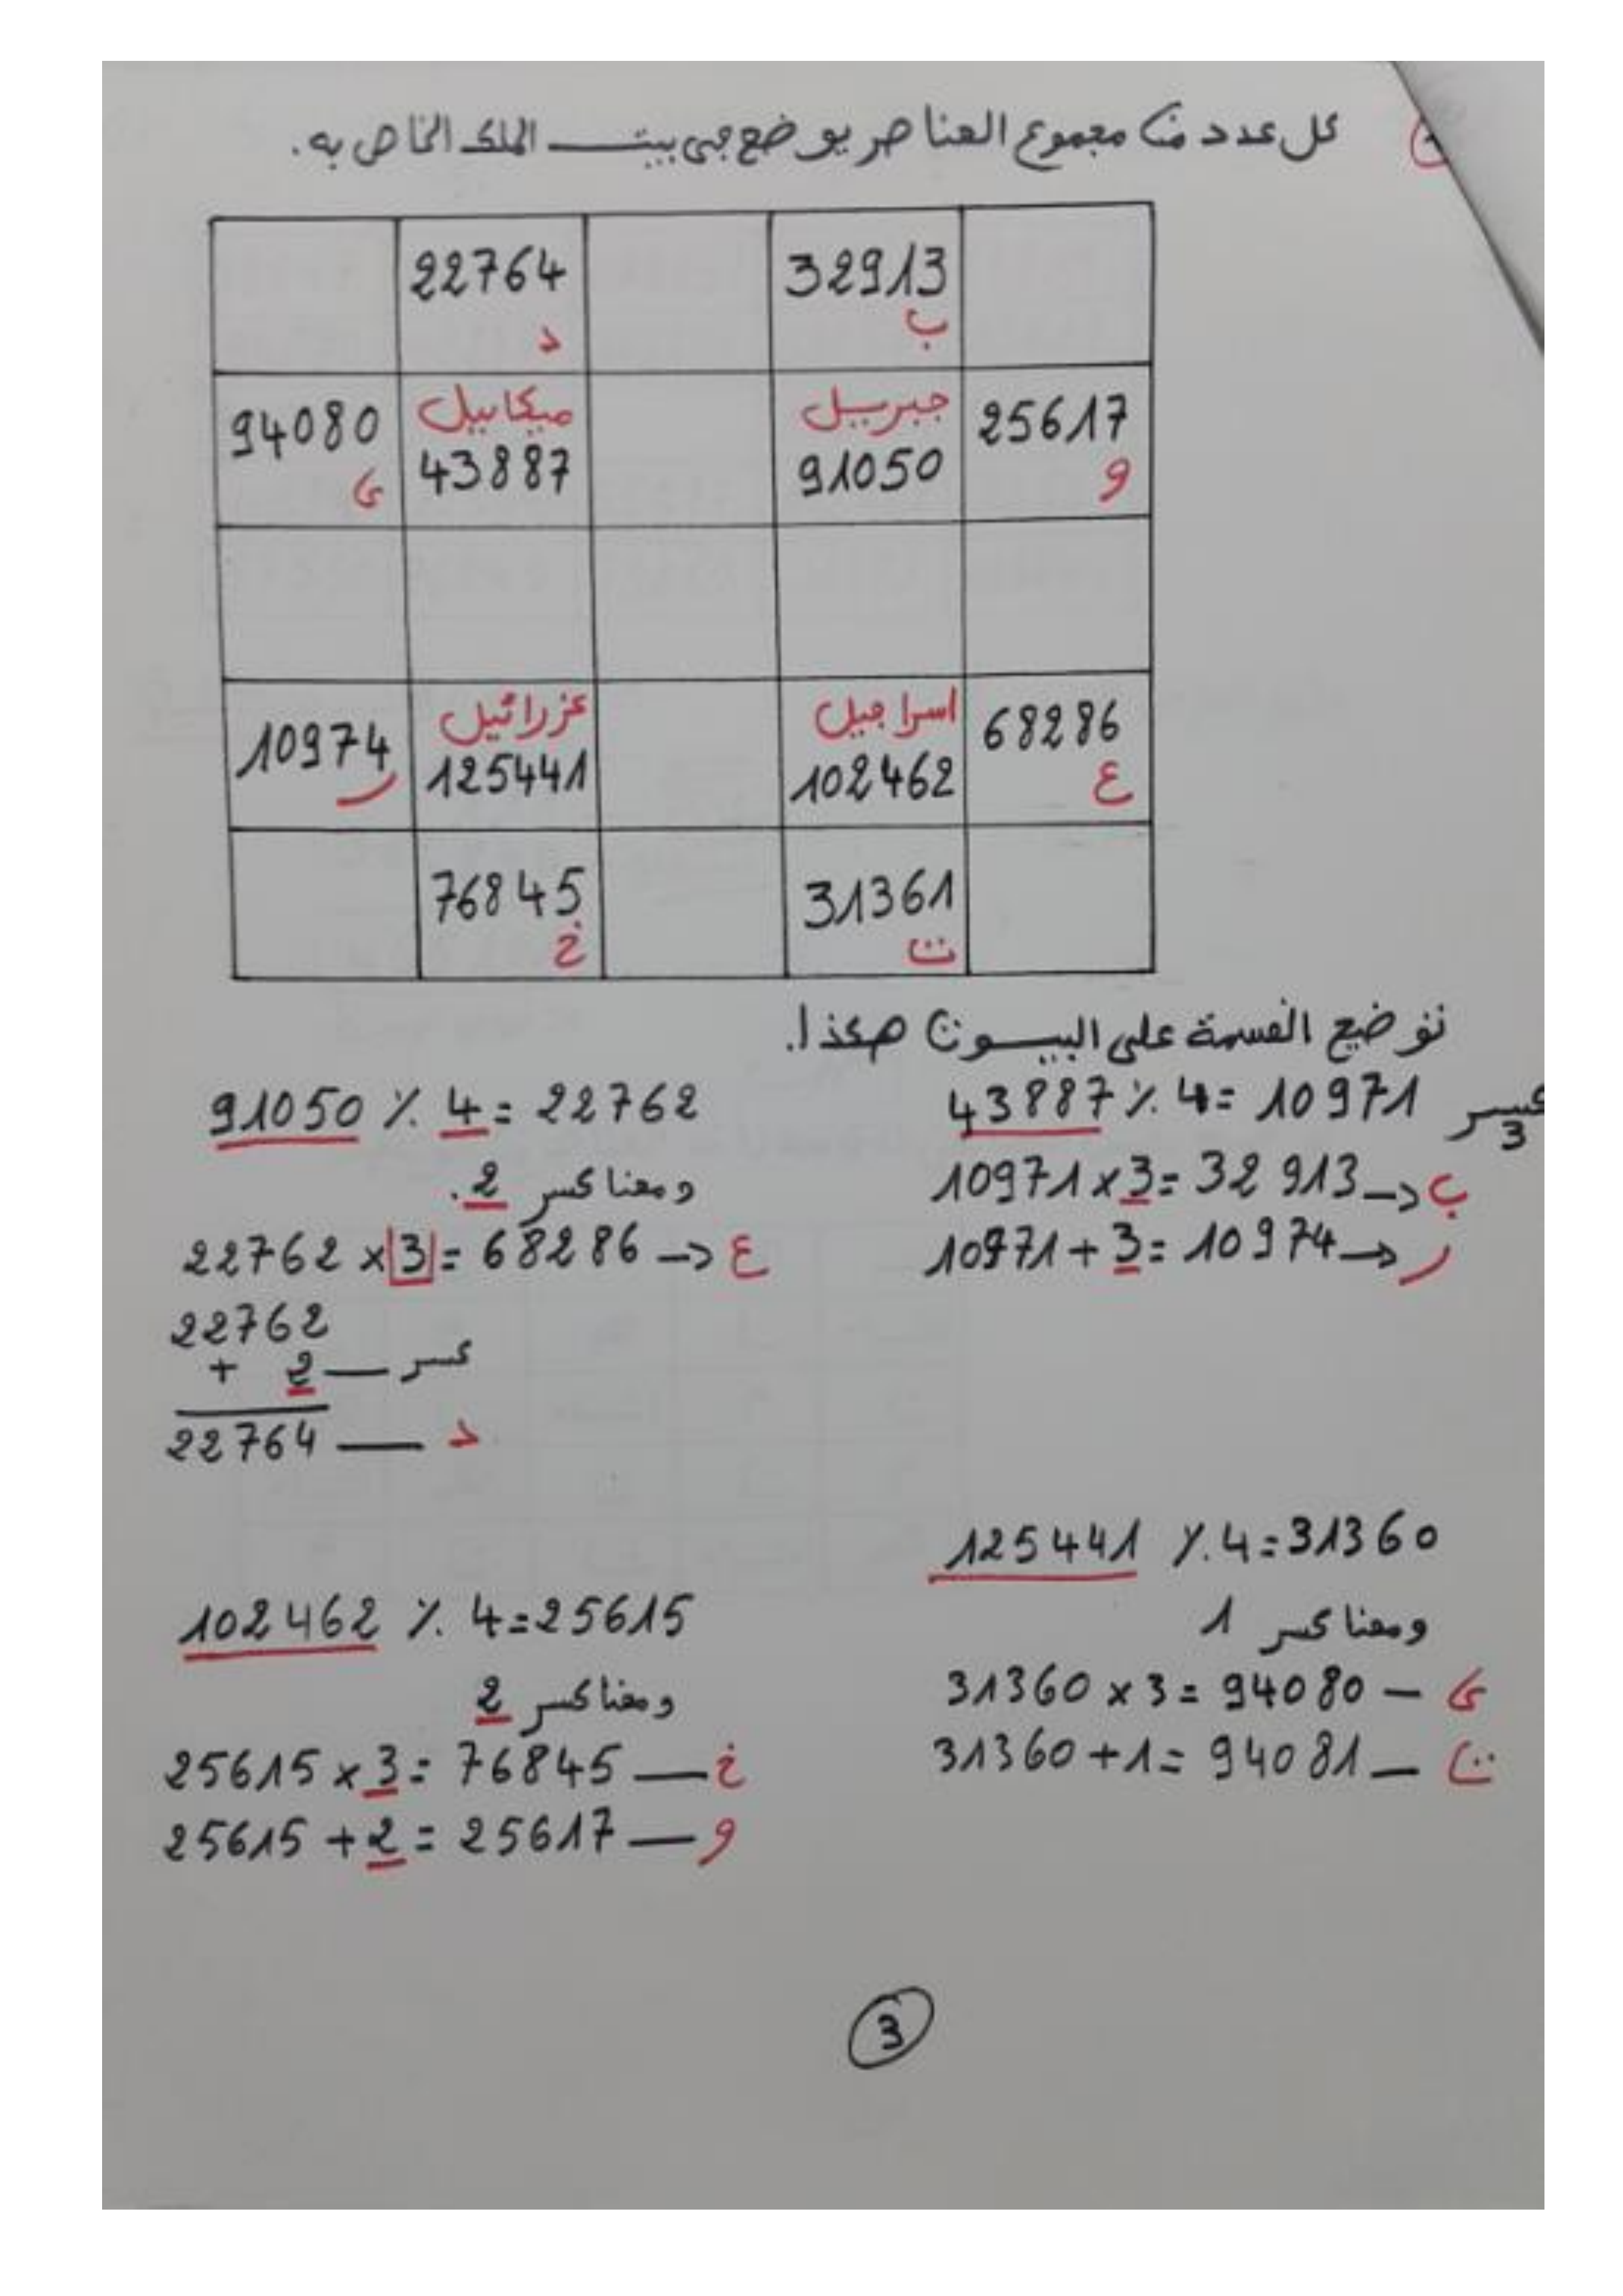 كل عدد من مجموع العناصر يوضع في بيت الملك الخاص به.
22764 32913
د ب
94080 ميكاييل جبريل 25617
ى 43887 91050 و
10974 عزرائيل اسرافيل 68286
ر 125441 102462 ع
76845 31361
خ ت
نوضيع القسمة على البيوت هكذا.
43887 ٪ 4 = 10971 كسر 3
10971 x 3 = 32 913 -> ب
10971 + 3 = 10974 -> ر
91050 ٪ 4 = 22762
ومعنا كسر 2.
22762 x 3 = 68286 -> ع
22762
+ 2 — كسر
22764 — د
125441 ٪ 4 = 31360
ومعنا كسر 1
31360 x 3 = 94080 – ى
31360 + 1 = 94081 – ت
102462 ٪ 4 = 25615
ومعنا كسر 2
25615 x 3 = 76845 — خ
25615 + 2 = 25617 — و
3